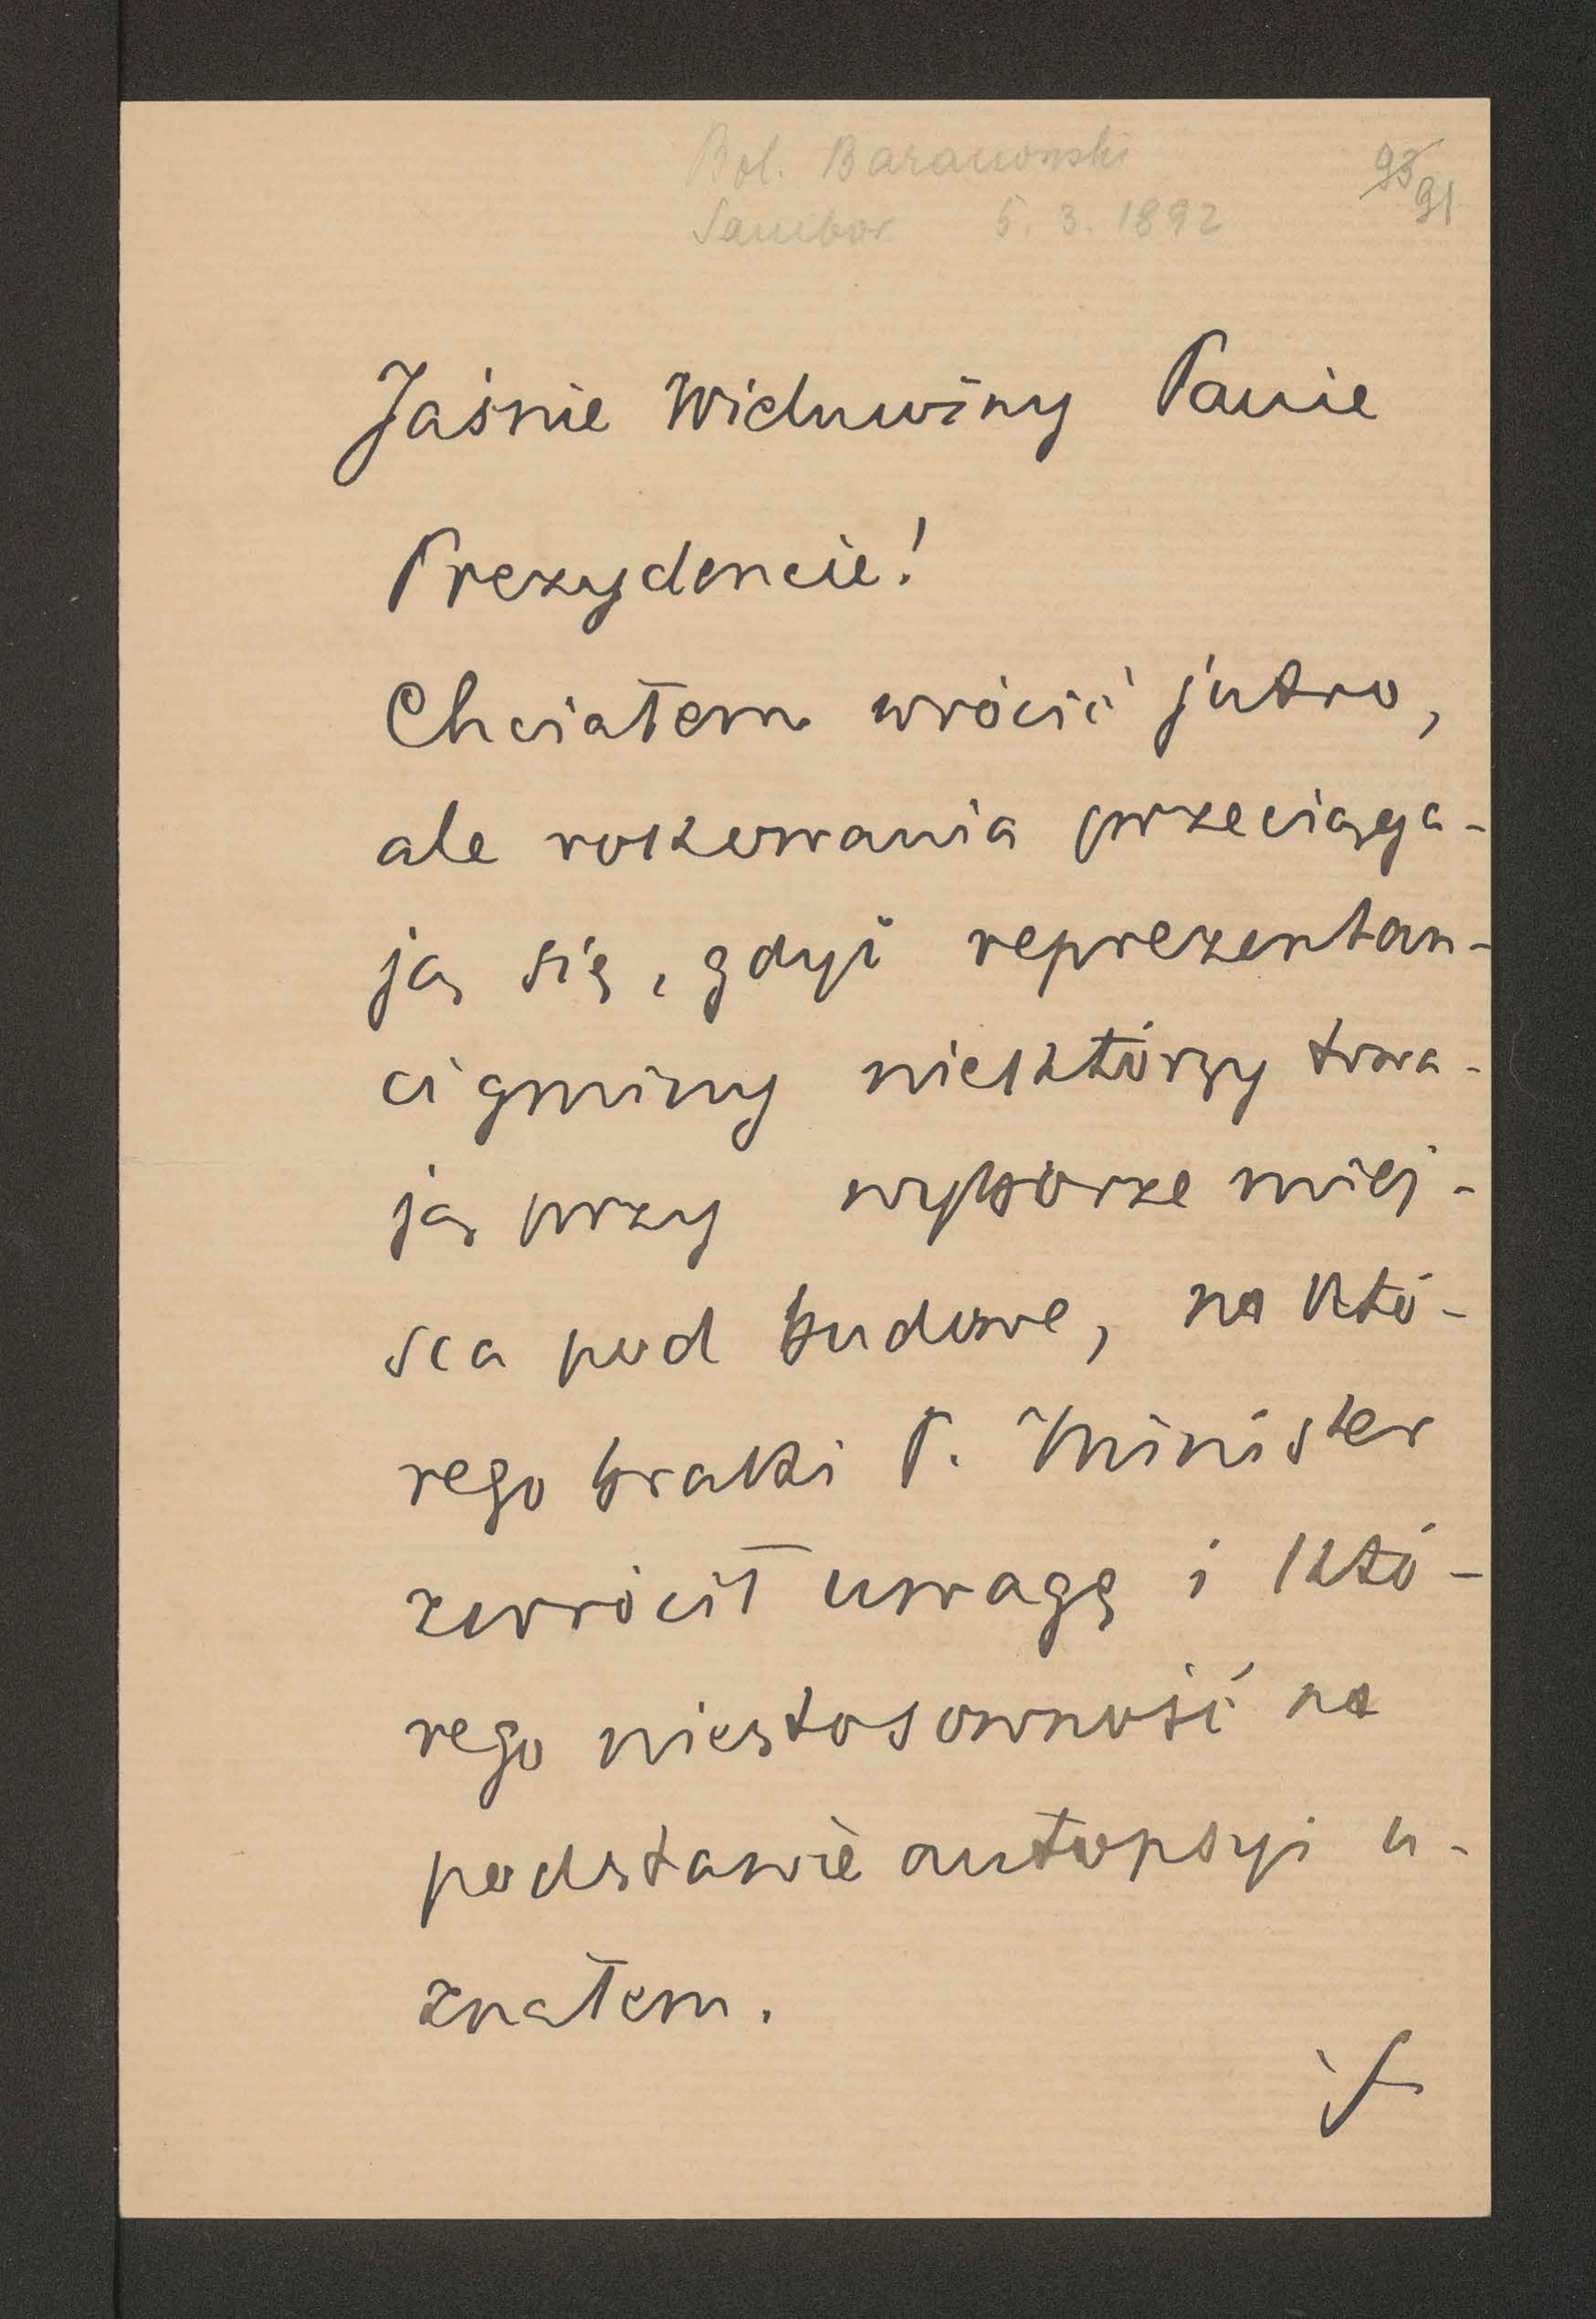 Bol. Baranowski
Sambor 5. 3. 1892
93
91
Jaśnie Wielmożny Panie
Prezydencie!
Chciałem wrócić jutro,
ale rokowania przeciąga-
ją się, gdyż reprezentan-
ci gminy niektórzy trwa-
ją przy wyborze miej-
sca pod budowę, na któ-
rego braki P. Minister
zwrócił uwagę i któ-
rego niestosowność na
podstawie autopsyi u-
znałem.